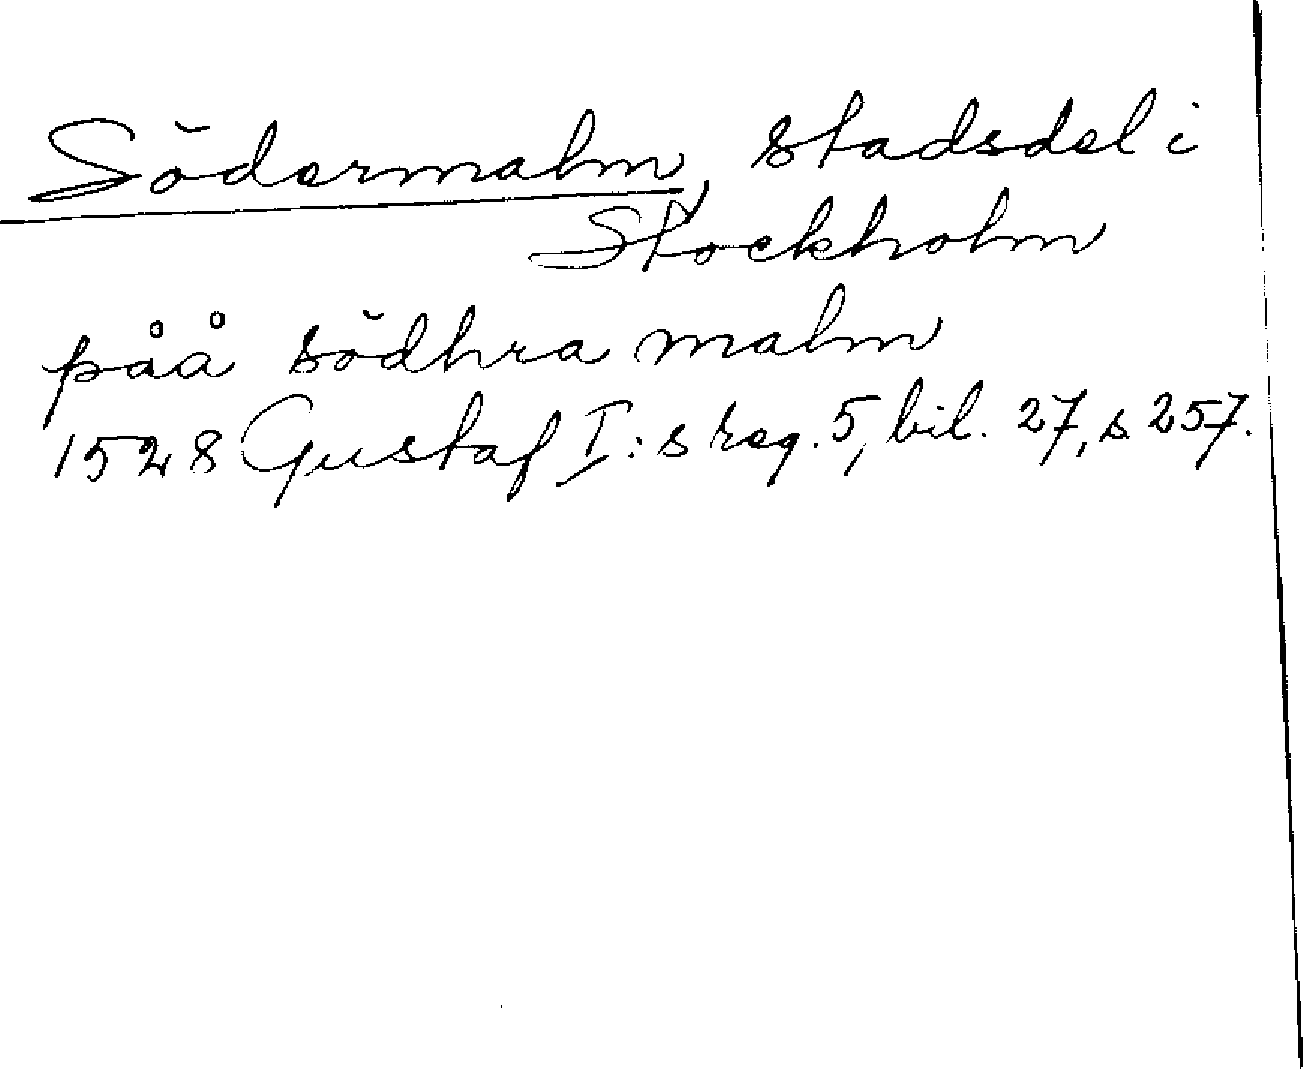 Södermalm, stadsdel i
Stockholm
påå södhra malm
1528 Gustaf I:s reg. 5, bil. 27, s. 257.